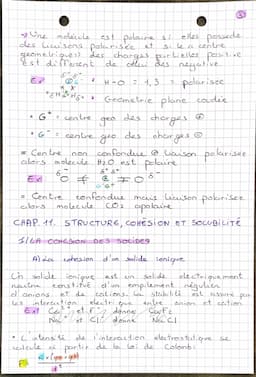 ③
→ Une molécule est polaire si elles possède
des liaisons polarisées et si le centre
géométrique des charges partielles positive
est différent de celui des négative
Ex
H-O = 1,3 → polarisée
Géométrie plane coudée
• G+ = centre géo des charges ⊕
• G- = centre géo des charges ⊖
= Centre non confondue & liaison polarisée
alors molécule H2O est polaire
Ex
= Centre confondue mais liaison polarisée
alors molécule CO2 apolaire
CHAP 11. STRUCTURE, COHÉSION ET SOLUBILITÉ
I/ LA COHÉSION DES SOLIDES
A) La cohésion d'un solide ionique
Un solide ionique est un solide électriquement
neutre constitué d'un empilement régulier
d'anions et de cations. La stabilité est assuré par
les interaction électrique entre anion et cation.
Ex: Ca2+ et F- donne CaF2
Na+ et Cl- donne NaCl
• L'intensité de l'interaction électrostatique se
calcule à partir de la loi de Colomb: